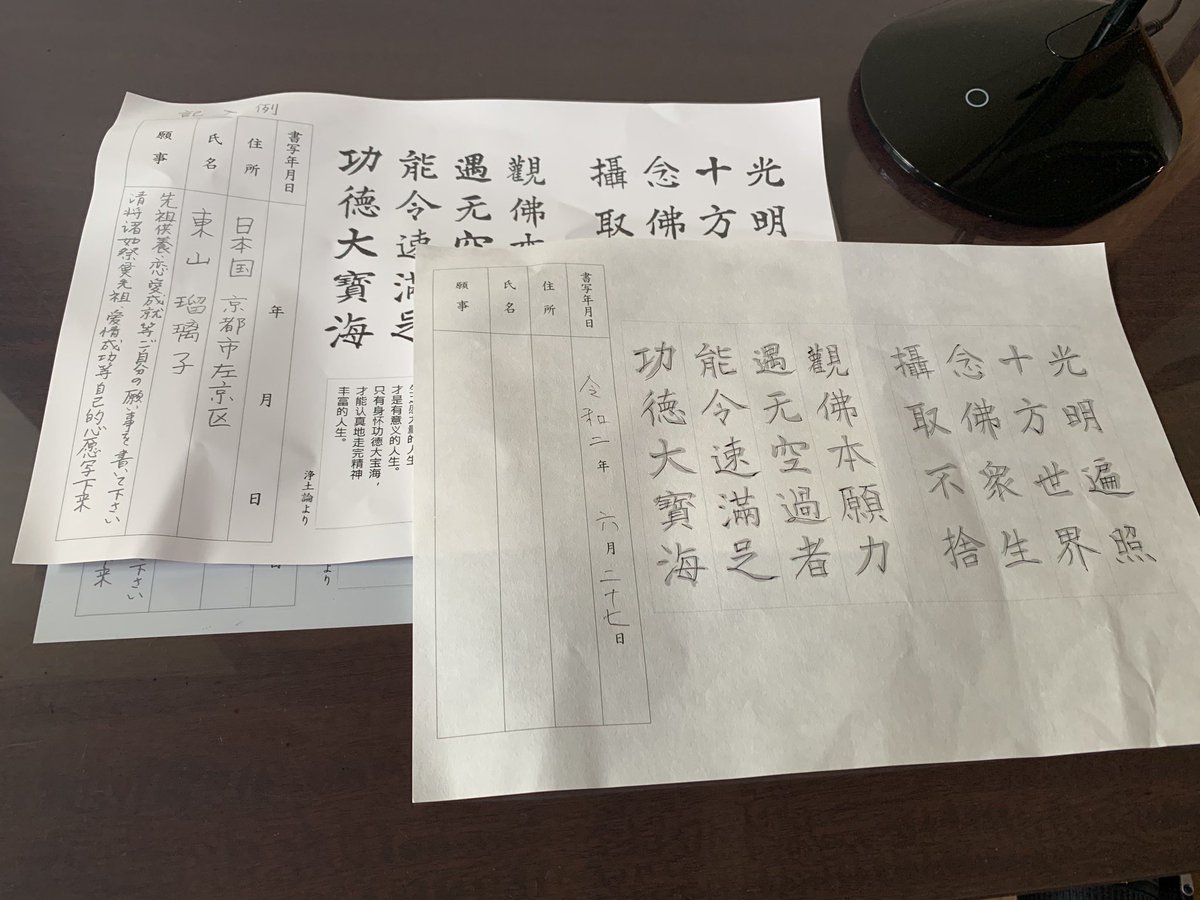 記入例
光明
十方
念佛
攝取
觀佛本
遇无空
能令速滿足
功德大寶海
才是有意义的人生。
只有身怀功德大宝海，
才能认真地走完精神
丰富的人生。
浄土論より
書写年月日 年 月 日
住所 日本国 京都市左京区
氏名 東山 瑠璃子
願事 先祖供養、恋愛成就等ご自分の願い事を書いて下さい
请将诸如祭奠先祖 爱情成功等自己的心愿写下来
光明遍照
十方世界
念佛衆生
攝取不捨
觀佛本願力
遇无空過者
能令速滿足
功德大寶海
書写年月日 令和二年 六月二十七日
住所
氏名
願事
より
日
下さい
来